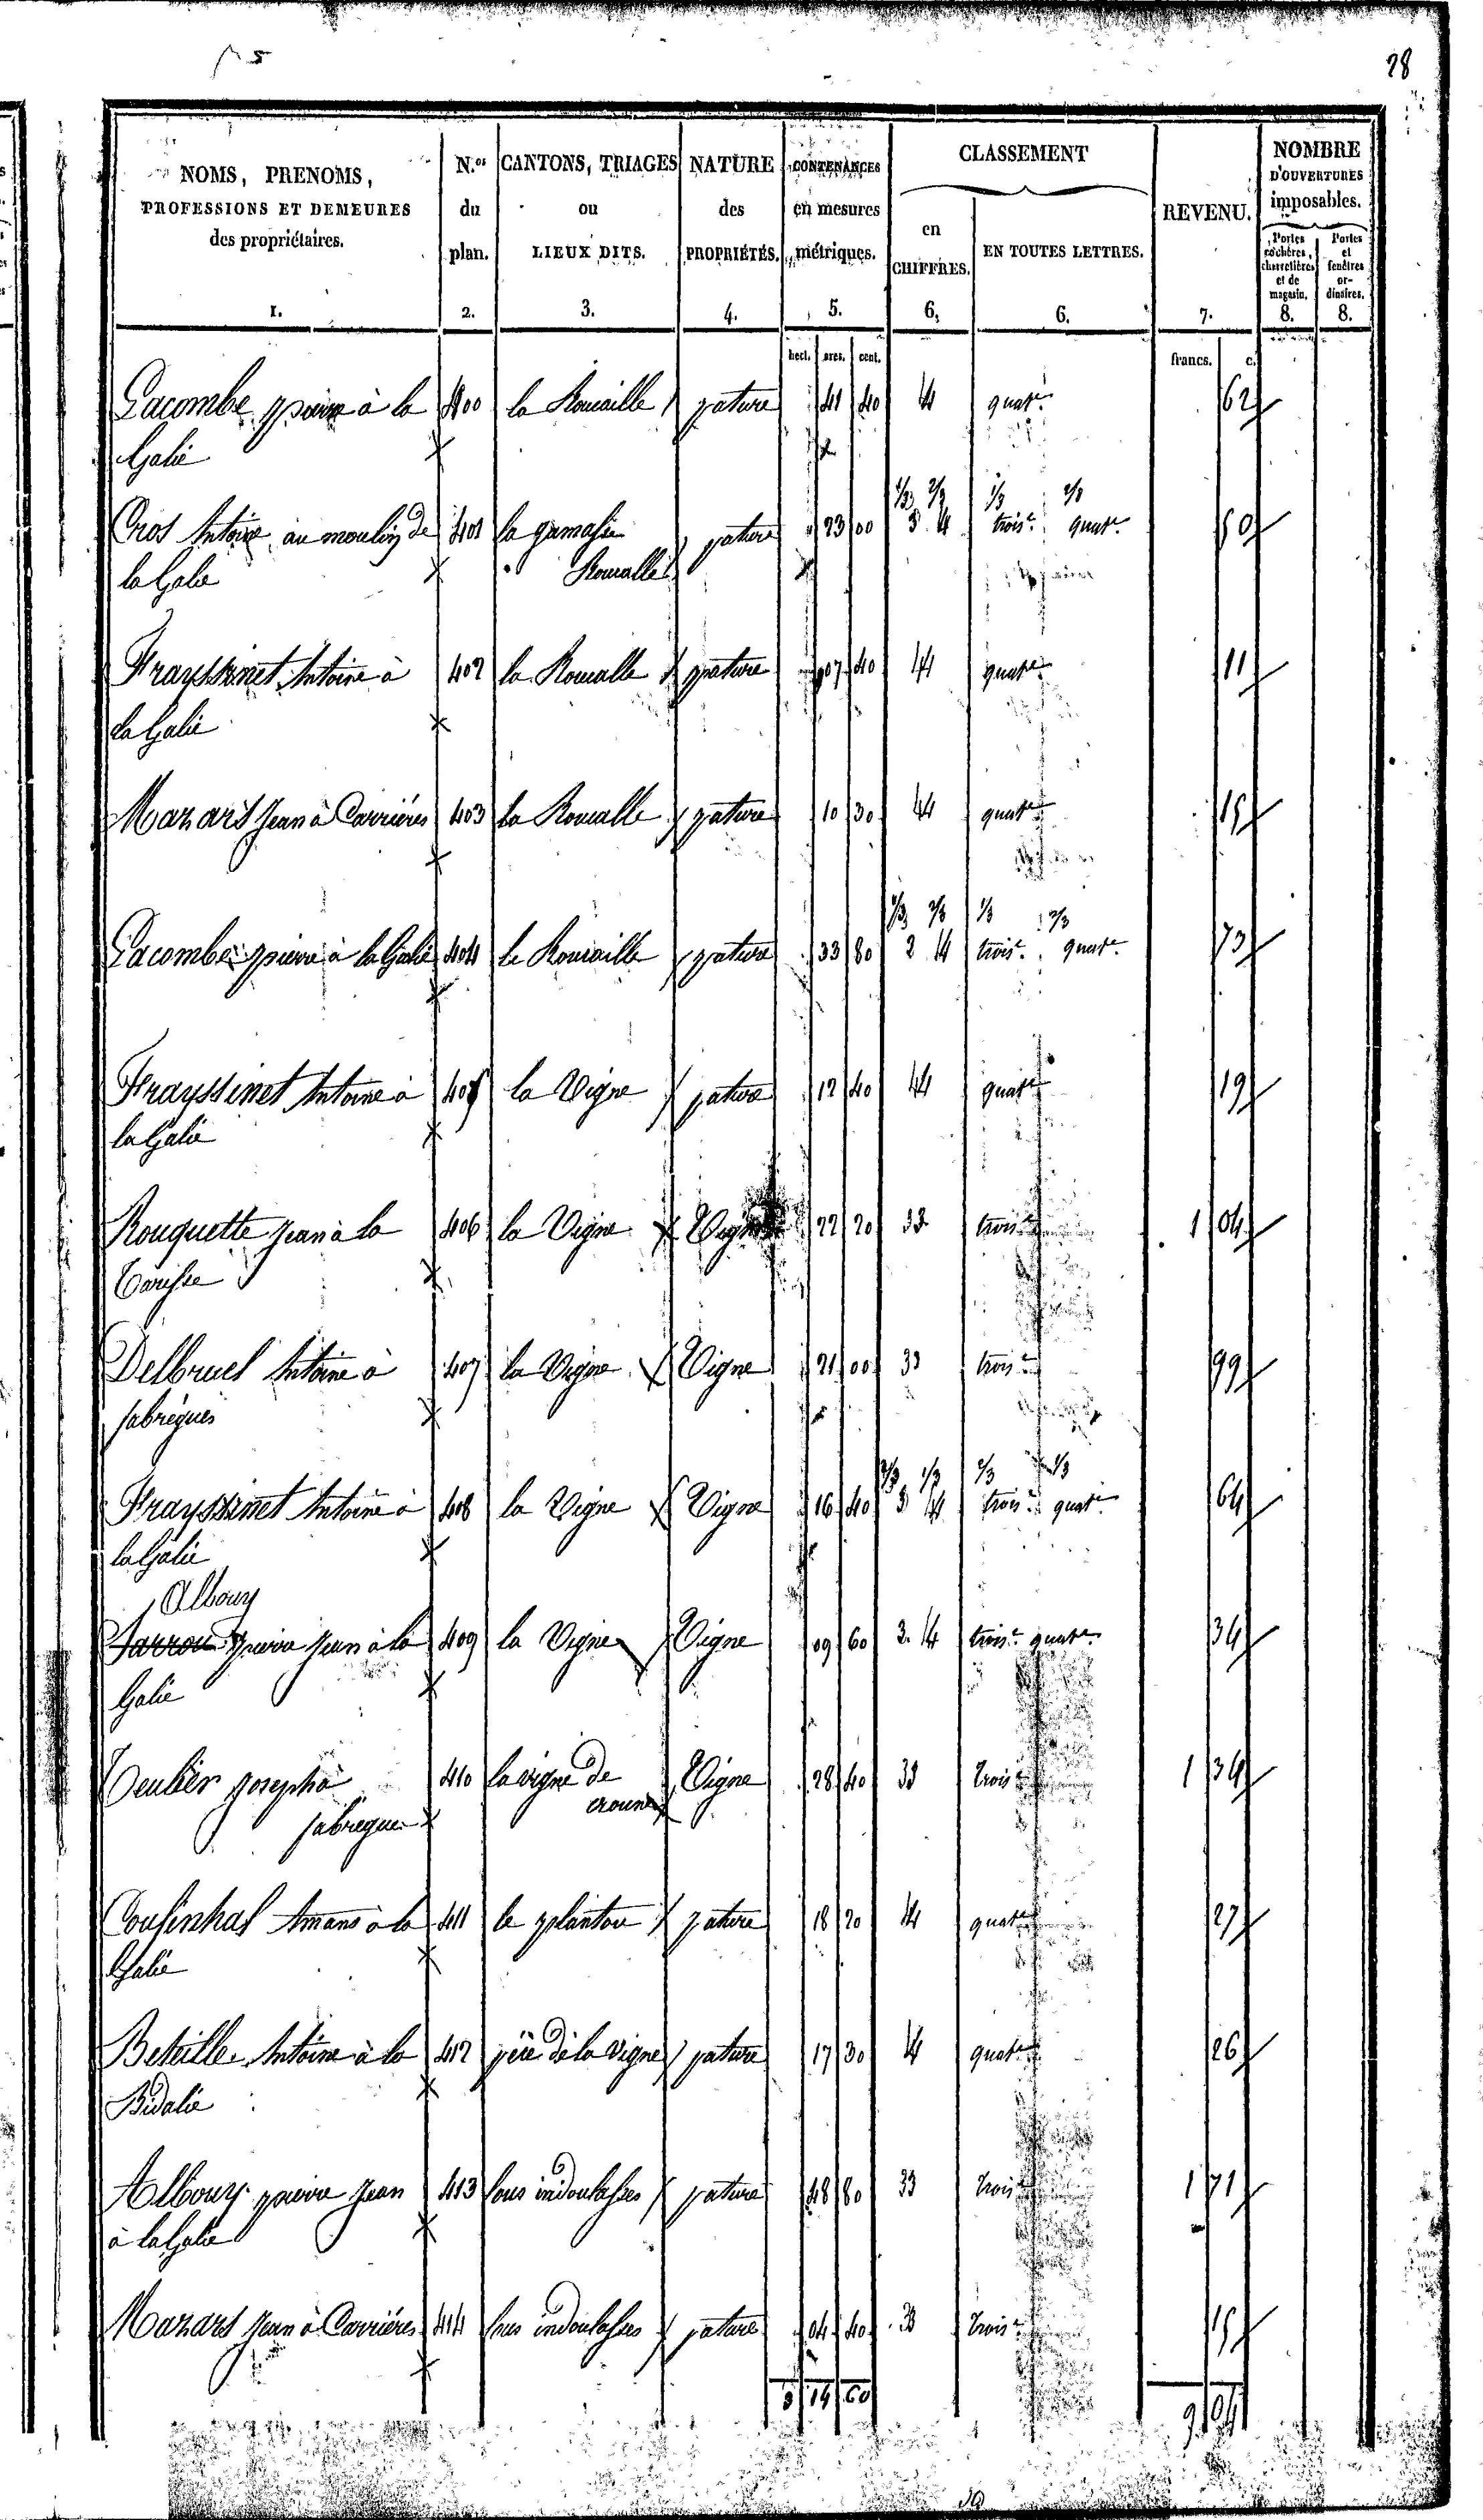 28
NOMS, PRENOMS, PROFESSIONS ET DEMEURES des propriétaires. 1.
N.os du plan. 2.
CANTONS, TRIAGES ou LIEUX DITS. 3.
NATURE des PROPRIÉTÉS. 4.
CONTENANCES en mesures métriques. 5.
CLASSEMENT
en CHIFFRES. 6.
EN TOUTES LETTRES. 6.
REVENU. 7.
NOMBRE D'OUVERTURES imposables.
Portes cochères, charretières et de magasin. 8.
Portes et fenêtres ordinaires. 8.
hect. ares. cent. francs. c.
Lacombe pierre à la 400 la Roucaille pature 41 40 4 quat.e 62
Galie
1/3 2/3 1/3 2/3
Cros Antoine au moulin de 401 la pature 23 00 3 4 trois.e quat.e 50
la Galie Roucalle
Frayssinet Antoine à 402 la Roucalle pature 07 40 4 quat.e 11
la Galie
Mazars Jean à Carrières 403 la Roucalle pature 10 30 4 quat.e 15
1/3 2/3 1/3 2/3
Lacombe pierre à la Galie 404 la Roucaille pature 33 80 3 4 trois.e quat.e 73
Frayssinet Antoine à 405 la Vigne pature 12 40 4 quat.e 19
la Galie
Rouquette Jean à la 406 la Vigne Vigne 22 20 3 trois.e 1 04
Delbruel Antoine à 407 la Vigne Vigne 21 00 3 trois.e 99
fabrègues
2/3 1/3 2/3 1/3
Frayssinet Antoine à 408 la Vigne Vigne 16 40 3 4 trois.e quat.e 64
la Galie
Albouy
pierre Jean à la 409 la Vigne Vigne 09 60 3. 4 trois.e quat.e 34
Galie
Teulier Joseph à 410 la vigne de Vigne 28 40 3 trois.e 1 34
fabregues
Cousinhal Amans à la 411 le plantou pature 18 20 4 quat.e 27
Galie
Beteille Antoine à la 412 de la Vigne pature 17 30 4 quat.e 26
Bidalie
Albouy pierre Jean 413 sous pature 48 80 3 trois.e 1 71
à la Galie
Mazars Jean à Carrières 414 sous pature 04 40 3 trois.e 15
3 14 60 9 04